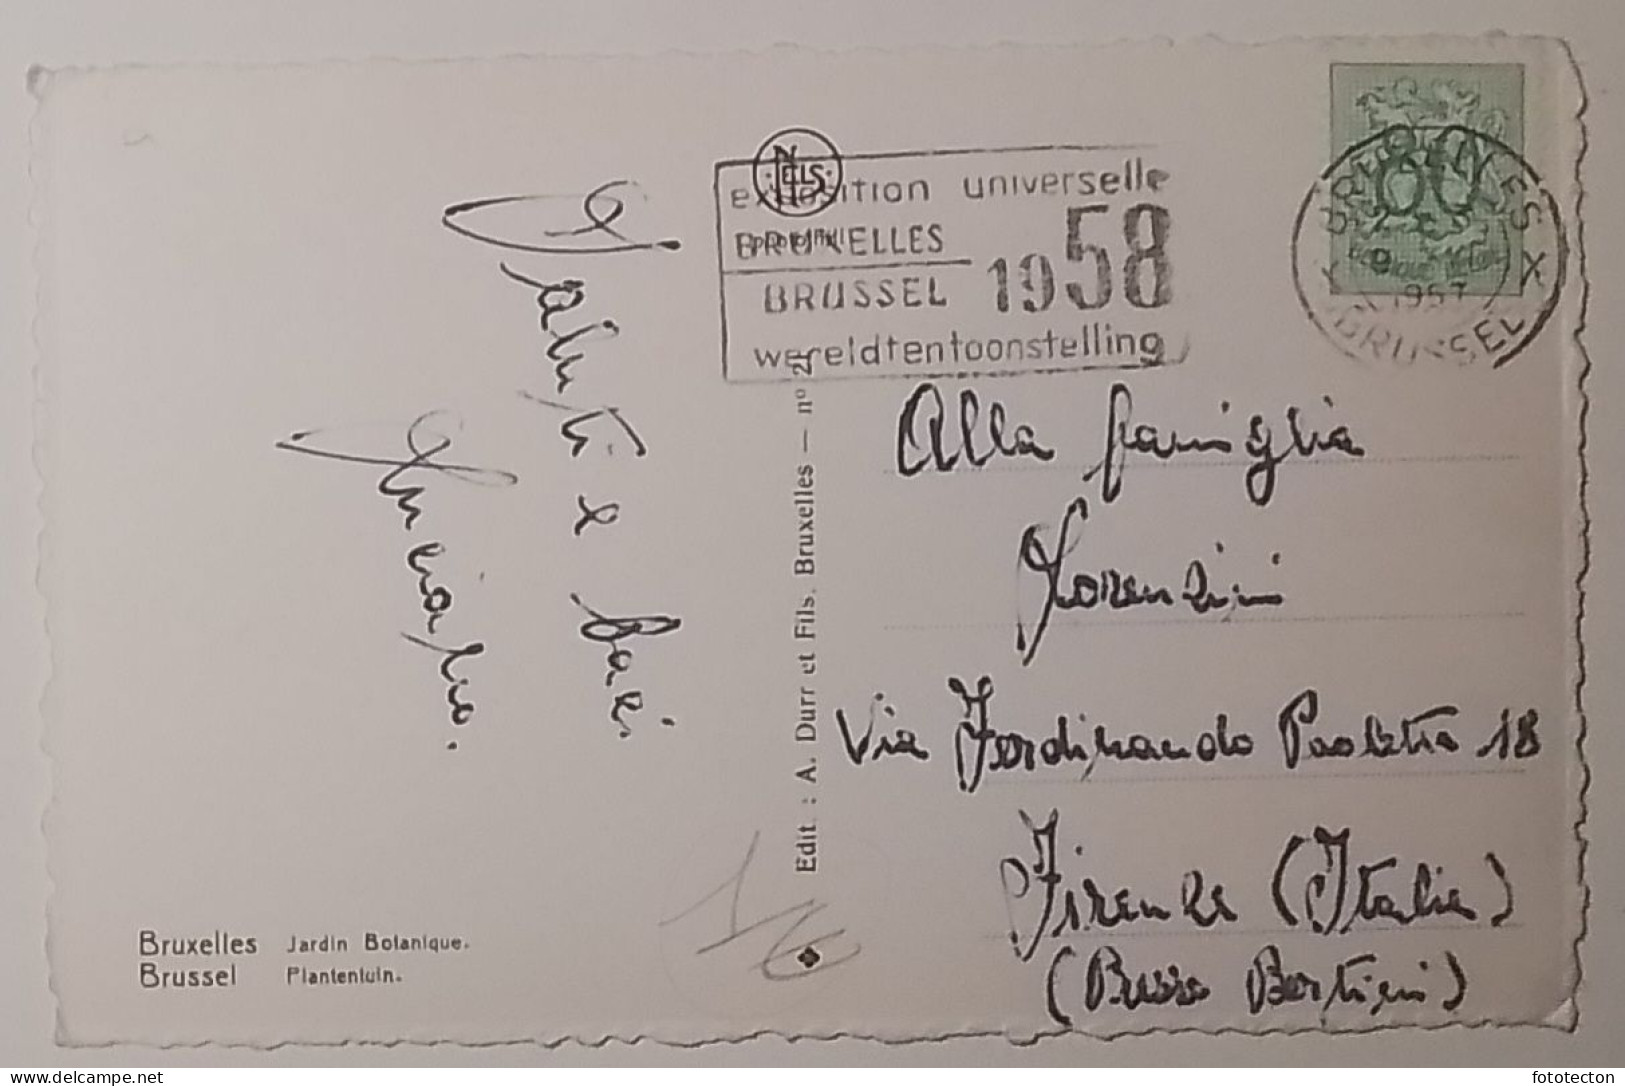 Saluti e baci
Annunziatio.
Bruxelles Jardin Botanique.
Brussel Plantentuin.
Edit. : A. Durr et Fils. Bruxelles — nº 21
NELS
exposition universelle
BRUXELLES
BRUSSEL 1958
wereldtentoonstelling
BRUXELLES X
1957
BRUSSEL X
80
Alla famiglia
Lorenzini
Via Ferdinando Paoletti 18
Firenze (Italia)
(Presso Bertini)
16
fototecton